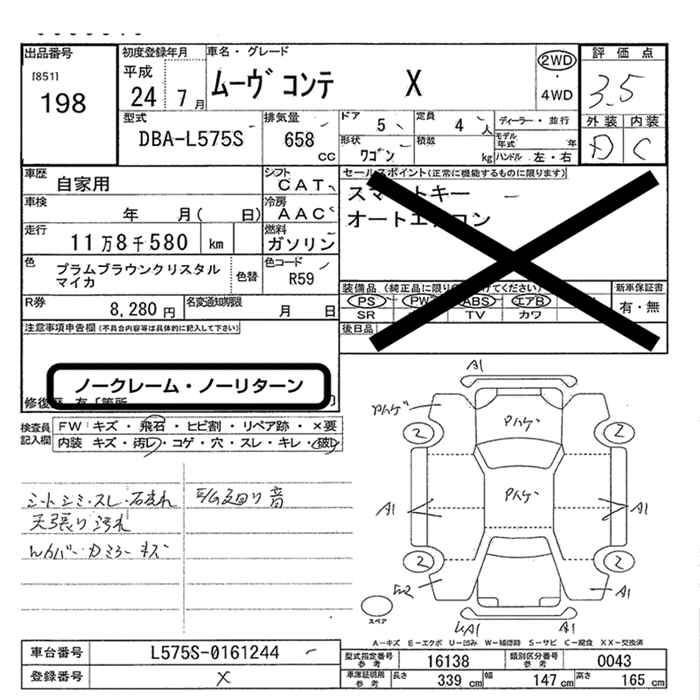 出品番号
[851]
198
初度登録年月
平成
24 7月
車名・グレード
ムーヴ コンテ X
2WD
・
4WD
評価点
3.5
外装 内装
D C
型式
DBA-L575S
排気量
658 cc
ドア 5
定員 4 人
形状 ワゴン
積載 kg
ディーラー・並行
モデル年式 年
ハンドル 左・右
車歴 自家用
シフト CAT
車検 年 月( 日)
冷房 AAC
走行 11万8千580 km
燃料 ガソリン
色 プラムブラウンクリスタルマイカ
色替
色コード R59
R券 8,280円
名変通知期限 月 日
セールスポイント(正常に機能するものに限ります)
スマートキー
オートエアコン
装備品(純正品に限り
けてください)
新車保証書
有・無
PS PW ABS エアB
SR TV カワ
後日品
注意事項申告欄(不具合内容等は具体的に記入して下さい)
ノークレーム・ノーリターン
検査員記入欄
FW:キズ・飛石・ヒビ割・リペア跡・×要
内装 キズ・汚レ・コゲ・穴・スレ・キレ・破レ
シートシミ・スレ・
天張り汚れ
廻り音
A1
2 2
A1 A1
2 2
A1
スペア
A-キズ E-エクボ U-凹み W-補修跡 S-サビ C-腐食 XX-交換済
車台番号 L575S-0161244
登録番号 X
型式指定番号参考 16138
類別区分番号参考 0043
車庫証明用参考 長さ 339 cm 幅 147 cm 高さ 165 cm